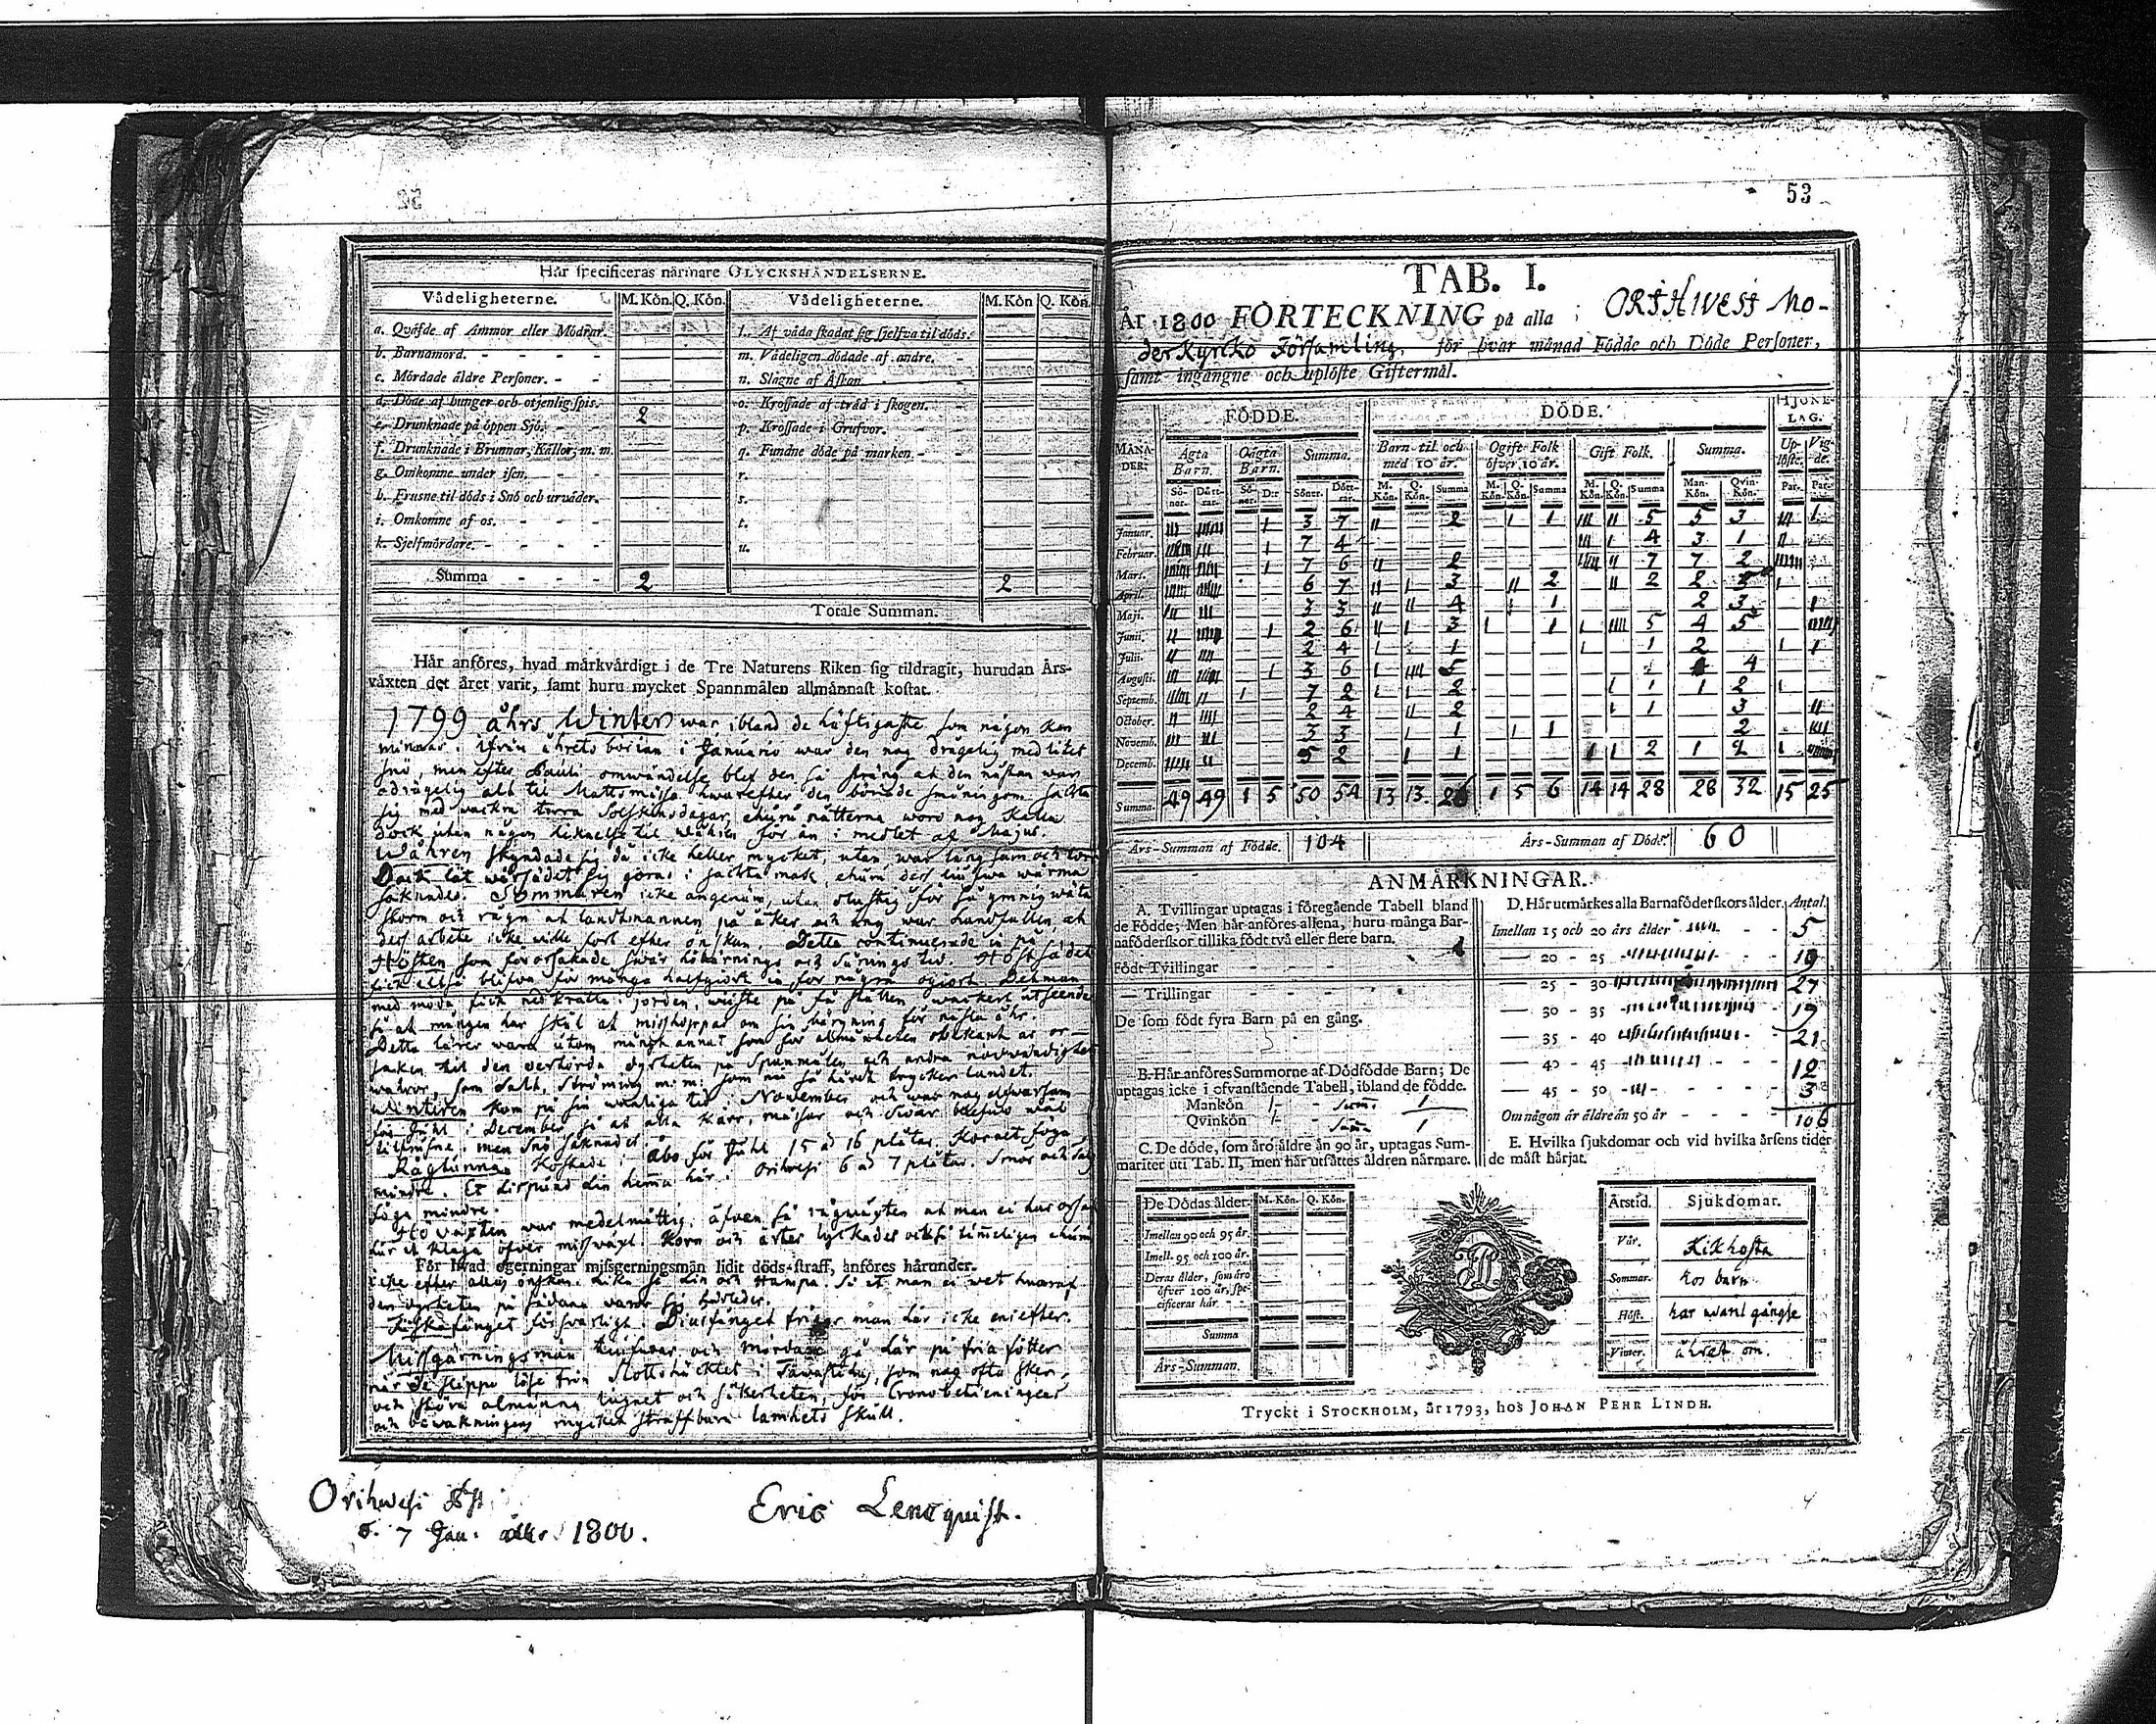 53
Hår specificeras närmare OLYCKSHÄNDELSERNE.
Vådeligheterne. M. Kön. Q. Kön. Vådeligheterne. M. Kön Q. Kön.
a. Qväfde af Ammor eller Mödrar. l. Af våda skadat sig sjelfva til döds.
b. Barnamord. m. Vådeligen dödade af andre.
c. Mördade äldre Personer. n. Slagne af Åskan.
d. Döde af hunger och otjenlig spis. o. Krossade af träd i skogen.
e. Drunknade på öppen Sjö. 2 p. Krossade i Grufvor.
f. Drunknade i Brunnar, Källor, m. m. q. Fundne döde på marken.
g. Omkomne under isen. r.
h. Frusne til döds i Snö och urväder. s.
i. Omkomne af os. t.
k. Sjelfmördare. u.
Summa 2 2
Totale Summan.
Hår anföres, hvad märkvärdigt i de Tre Naturens Riken sig tildragit, hurudan Års-
växten det året varit, samt huru mycket Spannmålen allmännast kostat.
1799 åhrs Winter war ibland de häftigaste som någon kan
minnas: ifrån åhrets början i Januario war den nog dragelig med litet
snö, men efter Pauli omwändelse blef den så sträng at den nästan war
odrägelig alt til Mattsmässa hwarefter den började småningom sakta
sig med wackra torra Solskensdagar, ehuru nätterna woro nog Kalla
dock utan någon liknelse til wåhren för än i medlet af Majus.
Wåhren skyndade sig då icke heller mycket, utan war långsam och
Dock lät wårsädet sig göras i sackta mak, ehuru dess liufwa wärma
saknades. Sommaren icke angenäm, utan olustig för så ymnig wäta
storm och rägn at landtmannen på åker och äng war
dess arbete icke wille fort efter önskan. Detta continuerade in på
Hösten som förorsakade swår och tid. Höstsädet
fick altså blifwa för många halfgiordt ja för några ogiort. Det man
med möda fick nedkratta i jorden, wiste på få ställen wackert utseende
så at mången har skäl at misshoppas om sin bärgning för nästa åhr.
Detta lärer wara utom mångt annat som för almänheten obekant är or-
saken til den oerhörda dyrheten på Spanmålen och andra nödwändighets
wahror, som Salt, Strömming m: m: som nu så hårdt trycker landet.
Winteren kom på sin wanliga tid i November och war nog alfwarsam
för Juhl i December så at alla Kärr, måssar och Swår wäl
tilfrusne: men snö saknades.
Rågtunnan Kostade i Åbo för Juhl 15 à 16 plåtar. Kornet föga
mindre. Et Lispund Lin hemma här i Orihwesi 6 à 7 plåtar. Smör och Talg
föga mindre.
Höwäxten war medelmåttig. äfven så rågwäxten at man ei har orsak
här at klaga öfver misswäxt. Korn och ärter lyckades också timeligen ehuru
För hvad ogerningar missgerningsmän lidit döds-straff, anföres härunder.
icke efter allas önskan. Lika så Lin och Hampa. Så at man ei wet hwaraf
den dyrheten på sådana waror sig härleder.
Fiskafänget försvarligt. Diurfånget frågar man här icke ens efter.
Missgärningsmän tiufwar och mördare gå där på fria fötter
när de slippa löse från Slottshäcktet i Tawastehus, som nog ofta sker,
och störa almänna lugnet och säkerheten, för Cronobetieningens
och bewakningens mycket straffbara lamhets skull.
Orihwesi
d. 7 Jan. åhr 1800.
Eric Lencquist.
TAB. I.
År 1800 FÖRTECKNING på alla i ORIHWESI Mo-
derKyrcko Församling, för hvar månad Födde och Döde Personer,
samt ingångne och uplöste Giftermål.
MÅNADER. FÖDDE. DÖDE. HJONELAG.
Ägta Barn. Oägta Barn. Summa. Barn til och med 10 år. Ogift Folk öfver 10 år. Gift Folk. Summa. Uplöste. Vigde.
Söner. Döttrar. Söner. D:r Söner. Döttrar. M. Kön. Q. Kön. Summa M. Kön. Q. Kön. Summa M. Kön. Q. Kön. Summa Man-Kön. Qvin-Kön. Par. Par.
Januar. III IIIIII 1 3 7 II 2 1 1 III II 5 5 3 III 1
Februar. 1 7 4 III 1 4 3 1 II
Mars. 1 7 6 II 2 IIIII II 7 7 2
April. 6 7 II 1 3 II 2 II 2 2 1
Maji. III III 3 3 II II 4 1 1 2 3 1
Junii. II 1 2 6 II 1 3 1 1 1 IIII 5 4 5
Julii. II IIII 2 4 1 1 1 1 2 1 1
Augusti. III 1 3 6 1 IIII 5 4
Septemb. II 1 7 2 1 1 2 1 1 1 2 1
October. II IIII 2 4 II 2 1 1 3 II
Novemb. III III 3 3 1 1 1 1 2 III
Decemb. IIIII II 5 2 1 1 1 1 2 1 2 1
Summa. 49 49 1 5 50 54 13 13 26 1 5 6 14 14 28 28 32 15 25
Års-Summan af Födde. 104 Års-Summan af Döde. 60
ANMÄRKNINGAR.
A. Tvillingar uptagas i föregående Tabell bland
de Födde; Men här anföres allena, huru många Bar-
naföderskor tillika födt två eller flere barn.
Födt Tvillingar
— Trillingar
De som födt fyra Barn på en gång.
B. Här anföres Summorne af Dödfödde Barn; De
uptagas icke i ofvanstående Tabell, ibland de födde.
Mankön 1 Sum. 1
Qvinkön 1
C. De döde, som äro äldre än 90 år, uptagas Sum-
mariter uti Tab. II, men här utsättes åldren närmare.
D. Här utmärkes alla Barnaföderskors ålder. Antal.
Imellan 15 och 20 års ålder 5
— 20 - 25 19
— 25 - 30 27
— 30 - 35 19
— 35 - 40 21
— 40 - 45 12
— 45 - 50 3
Om någon är äldre än 50 år
106
E. Hvilka sjukdomar och vid hvilka årsens tider
de mäst härjat.
De Dödas ålder. M. Kön. Q. Kön.
Imellan 90 och 95 år.
Imell. 95 och 100 år.
Deras ålder, som äro
öfver 100 år, spe-
cificeras här.
Summa
Års-Summan.
Årstid. Sjukdomar.
Vår. Kikhosta
Sommar. hos barn
Höst. har warit gängse
Vinter. åhret om.
Tryckt i STOCKHOLM, år 1793, hos JOHAN PEHR LINDH.